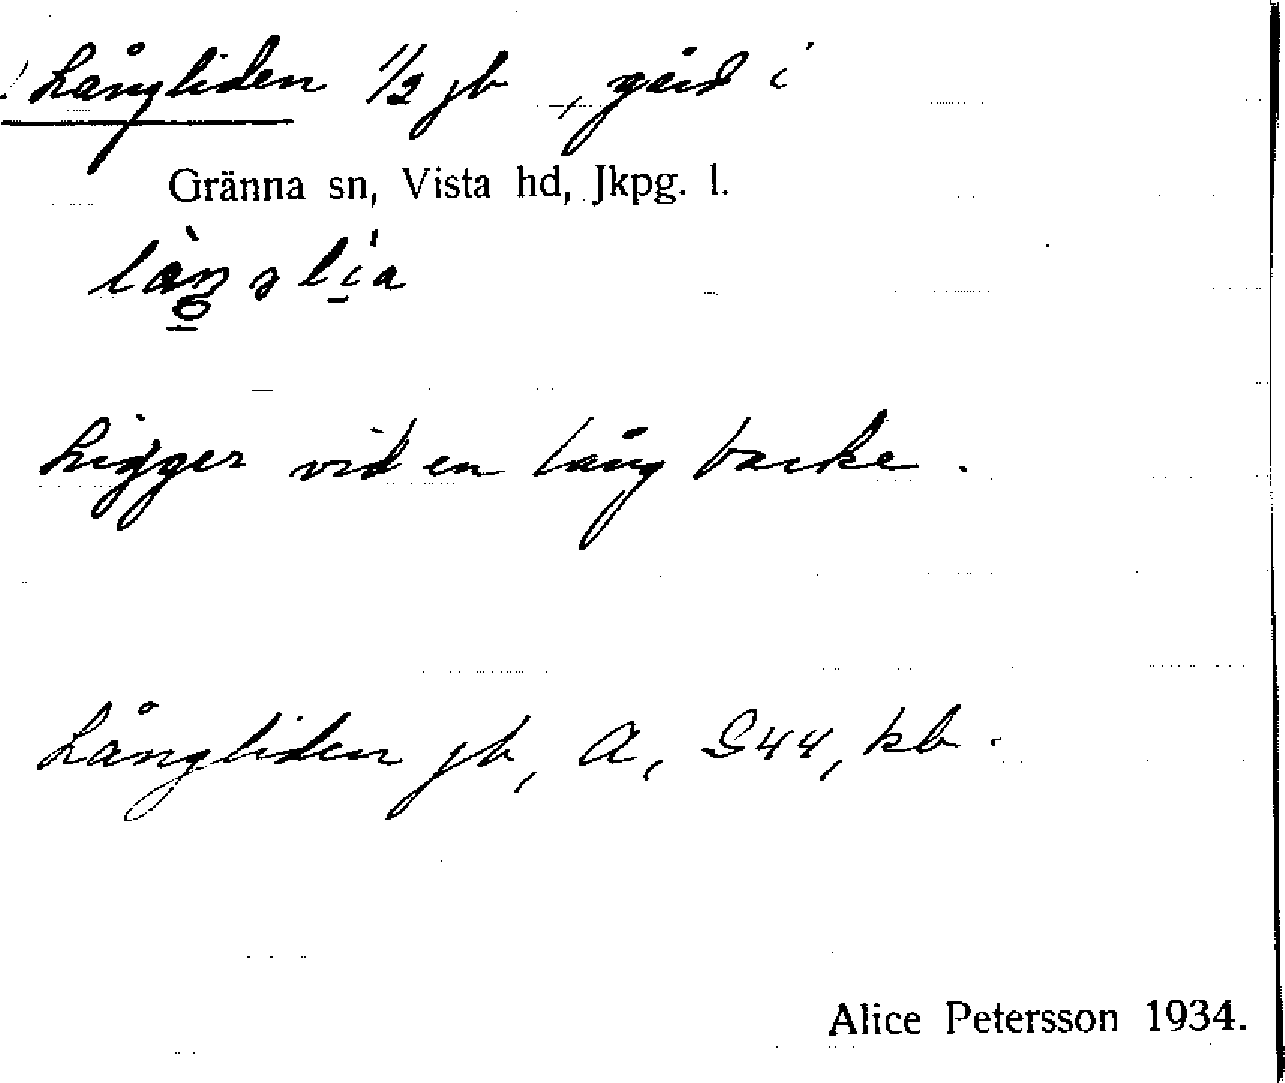 Långliden 1/2 jb +, gård i
Gränna sn, Vista hd, Jkpg. l.
Ligger vid en lång backe.
Långliden jb, A, S44, kb.
Alice Petersson 1934.